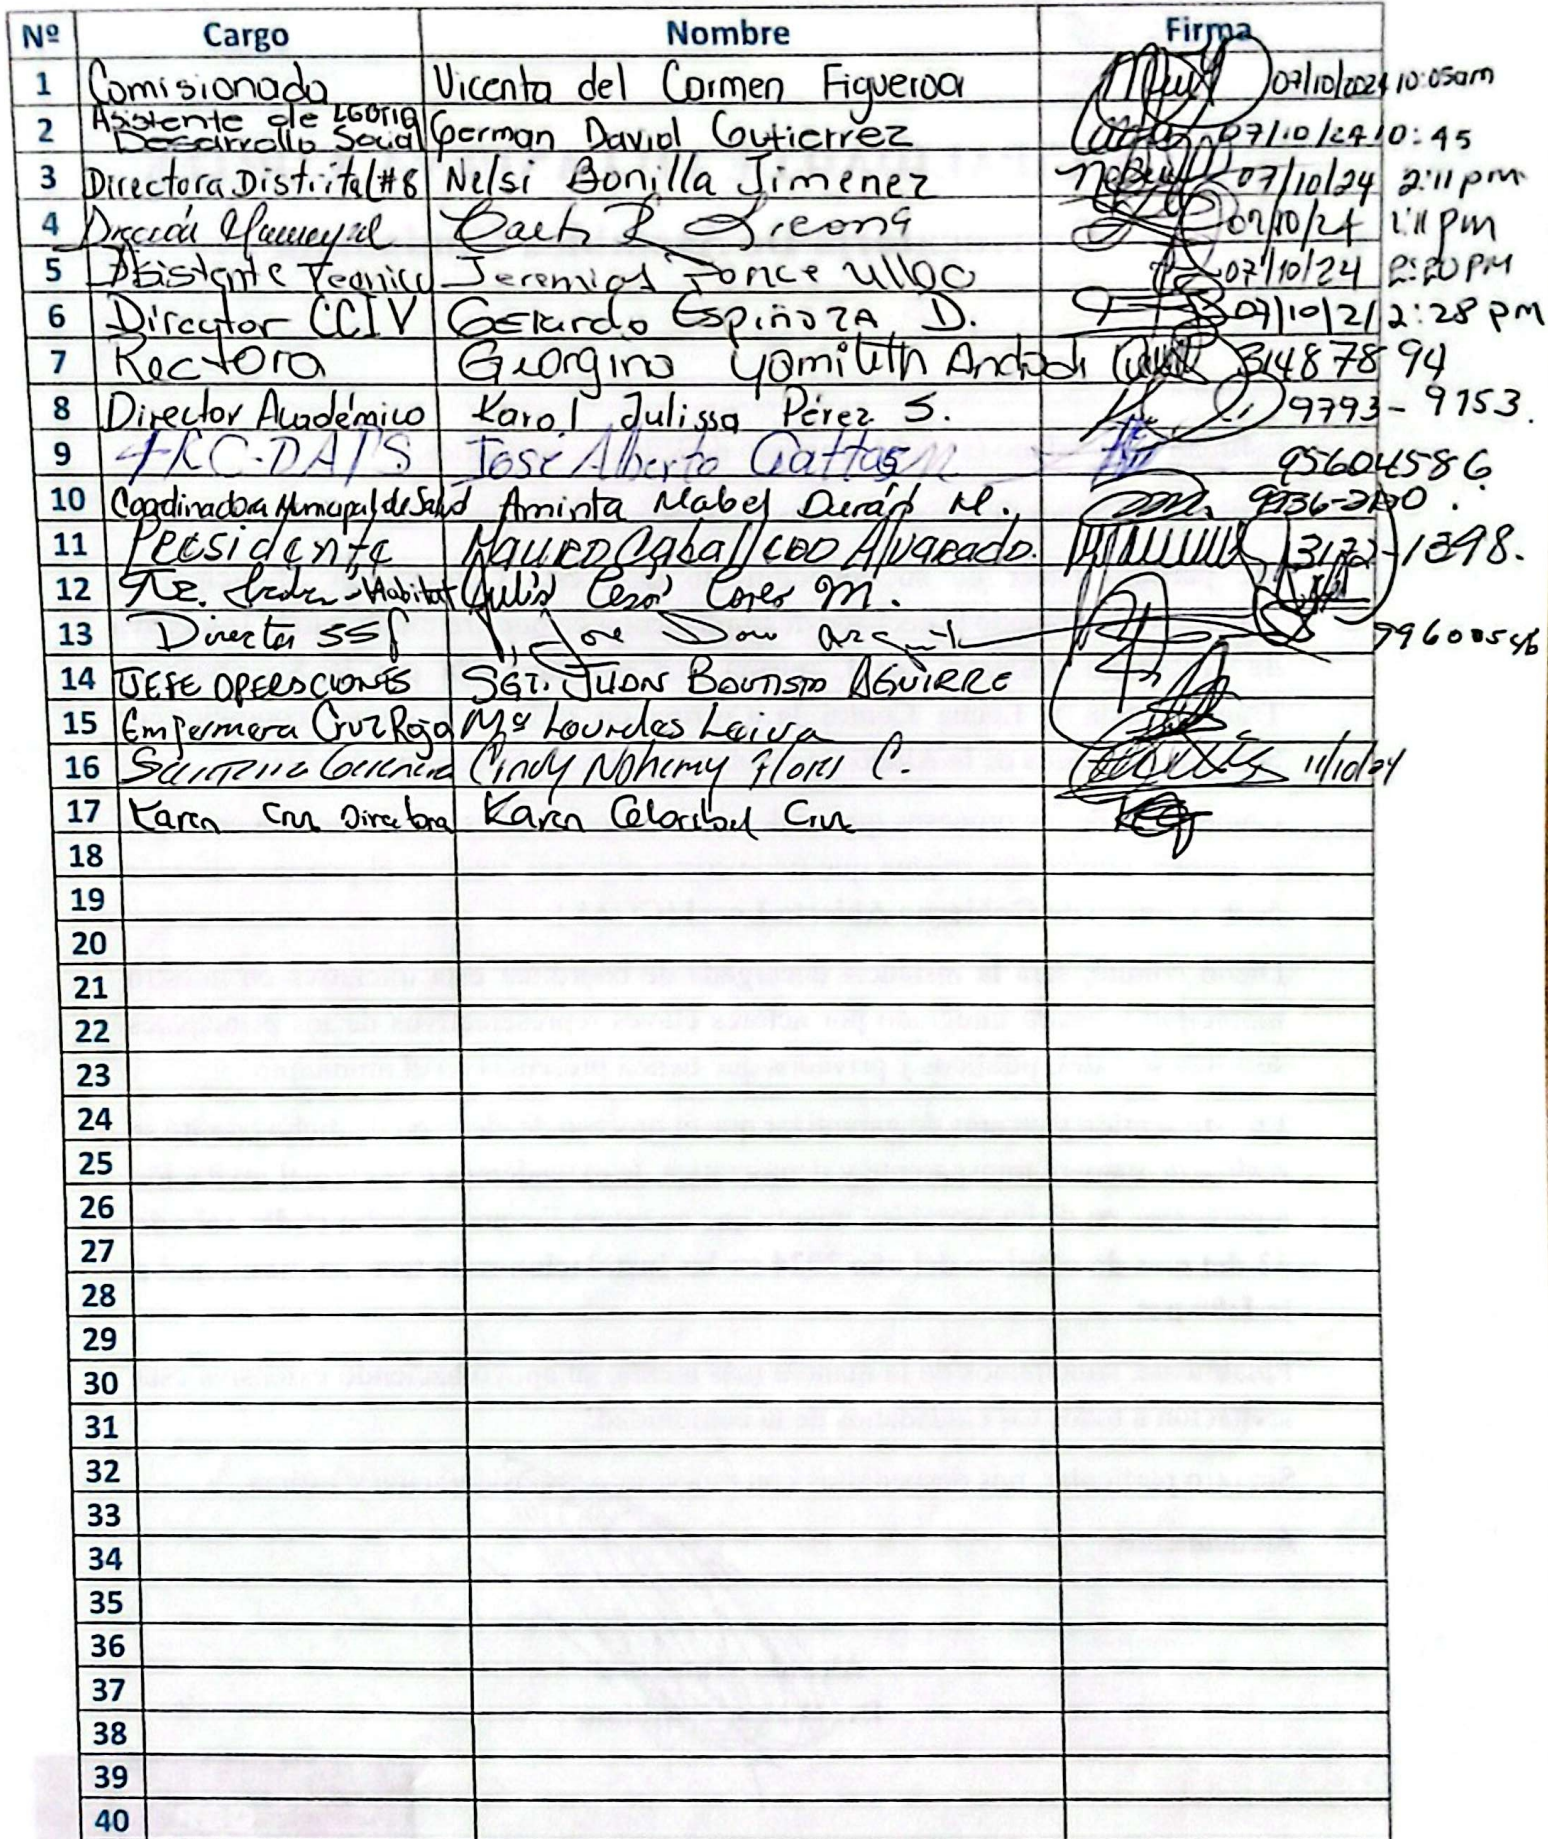 Nº Cargo Nombre Firma
1 Comisionada Vicenta del Carmen Figueroa 07/10/2024 10:05am
2 Asistente de
Desarrollo Social German David Gutierrez 07/10/24 10:45
3 Directora Distrital #8 Nelsi Bonilla Jimenez 07/10/24 2:11 pm
4 07/10/24 pm
5 Asistente Tecnico Jeremias Ponce Ulloa 07/10/24 2:20 PM
6 Director CCIV Gerardo Espinoza D. 2:28 pm
7 Rectora Georgina Yamileth 31487894
8 Director Académico Karol Julissa Pérez S. 9793-9153.
9 José Alberto 95604586
10 Coordinadora Municipal de Salud Aminta Mabel Durán M.
11 Presidente Mauro Caballero Alvarado. 
12 Habitat Julio Cesar M.
13 Director José
14 JEFE OPERACIONES SGT. JUAN BAUTISTA AGUIRRE
15 Enfermera Cruz Roja Mª Lourdes Leiva
16 Cindy Nohemy Flores C. 11/10/24
17 Karen Cruz Directora Karen Cruz
18
19
20
21
22
23
24
25
26
27
28
29
30
31
32
33
34
35
36
37
38
39
40